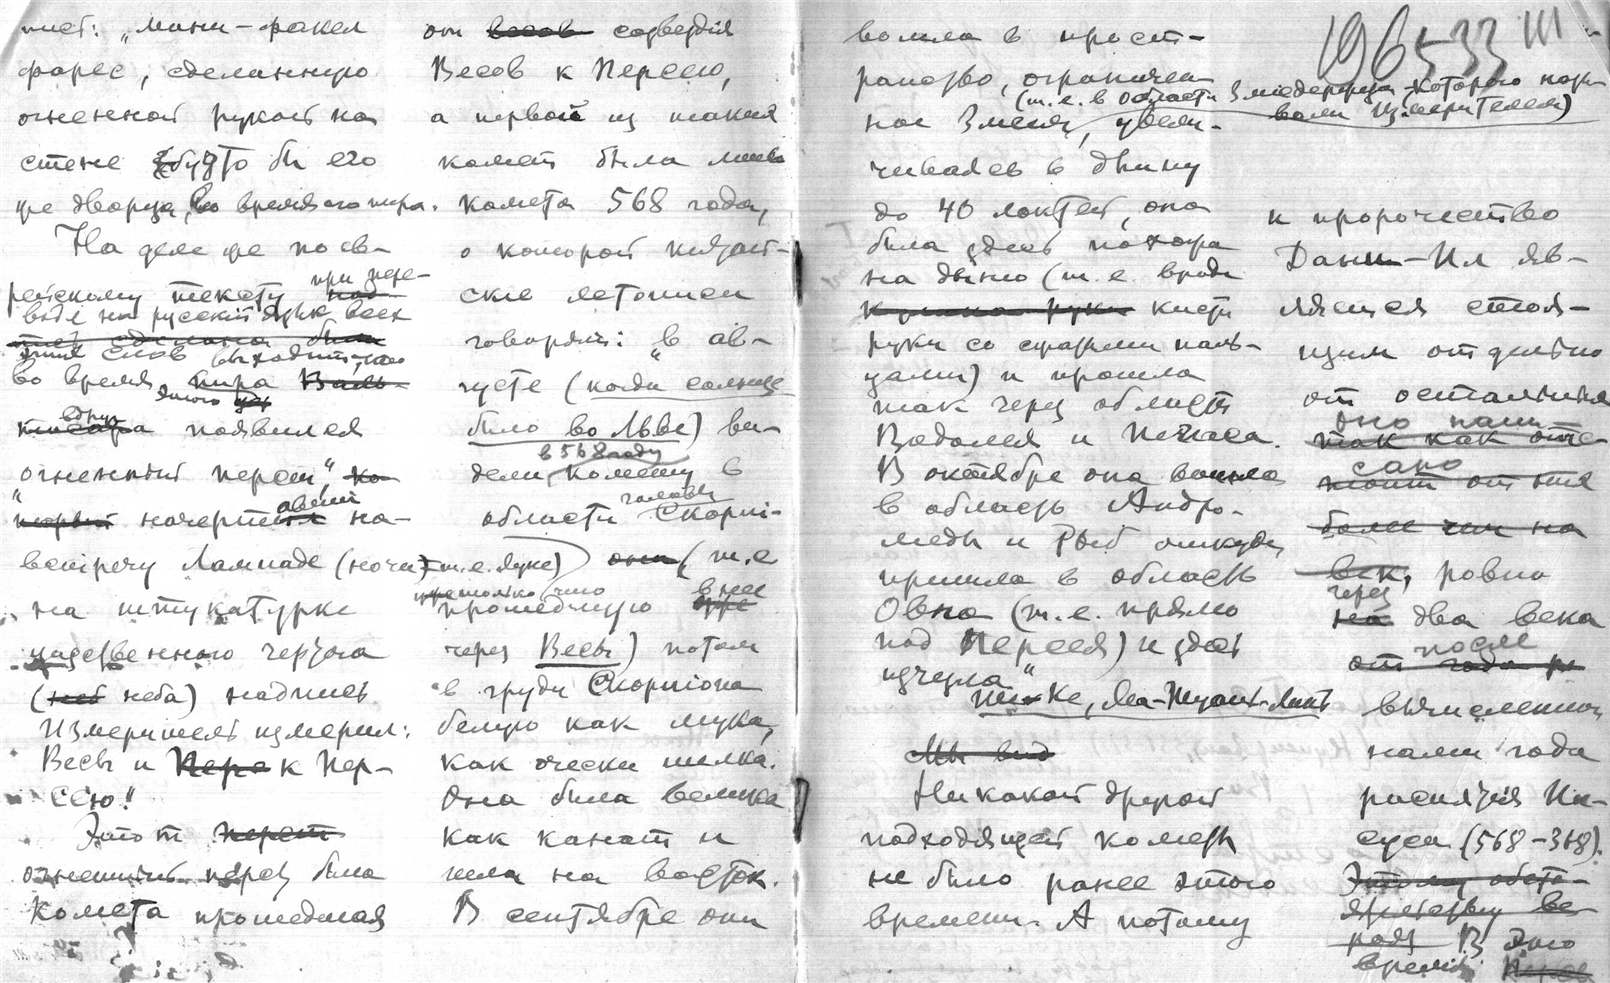 пист: „мани-факел
фарес, сделанную
огненной рукой на
стене будто бы его
же дворца, во время его пира.
На деле же по ев-
рейскому тексту при пере-
воде на русский язык всех
этих слов выходит, что
во время этого пира
вдруг появился
„огненный перст",
начертавший на-
встречу Лампаде (ночи)
на штукатурке
царственного чертога
(неба) надпись
Измеритель измерил:
Весы и к Пер-
сею!"
Этот
огненный перст была
комета прошедшая
от весов созвездия
Весов к Персею,
а первой из таких
комет была
комета 568 года,
о которой китай-
ские летописи
говорят: „в ав-
густе (когда солнце
было во Льве) ви-
дели в 568 году комету в
области головы Скорпи-
(т.е.
прошедшую
через Весы) потом
в груди Скорпиона
белую как мука,
как очески шелка.
Она была велика
как канат и
шла на восток.
В сентябре она
вошла в прост-
ранство, ограничен-
ное Змеей, увели-
(т.е. в области Змиедержца которого назы-
вали Измерителем)
чиваясь в длину
до 40 локтей, она
была здесь похожа
на дыню (т.е. вроде
кисти
руки со сжатыми паль-
цами) и прошла
так через область
Водолея и Пегаса.
В октябре она вошла
в область Андро-
меды и Рыб откуда
пришла в область
Овна (т.е. прямо
под Персея) и здесь
исчезла"
Ше-Ке, Ма-Туан-Линь
Мы вид
Никакой другой
подходящей кометы
не было ранее этого
времени. А потому
1965-33 III
и пророчество
Дани-Ил яв-
ляется стоя-
щим отдельно
от остальных
оно нами
так как отс-
само
более чем на
век, ровно
через
на два века
после
вычисленного
нами года
распятия Ии-
суса (568-368).
В это
время